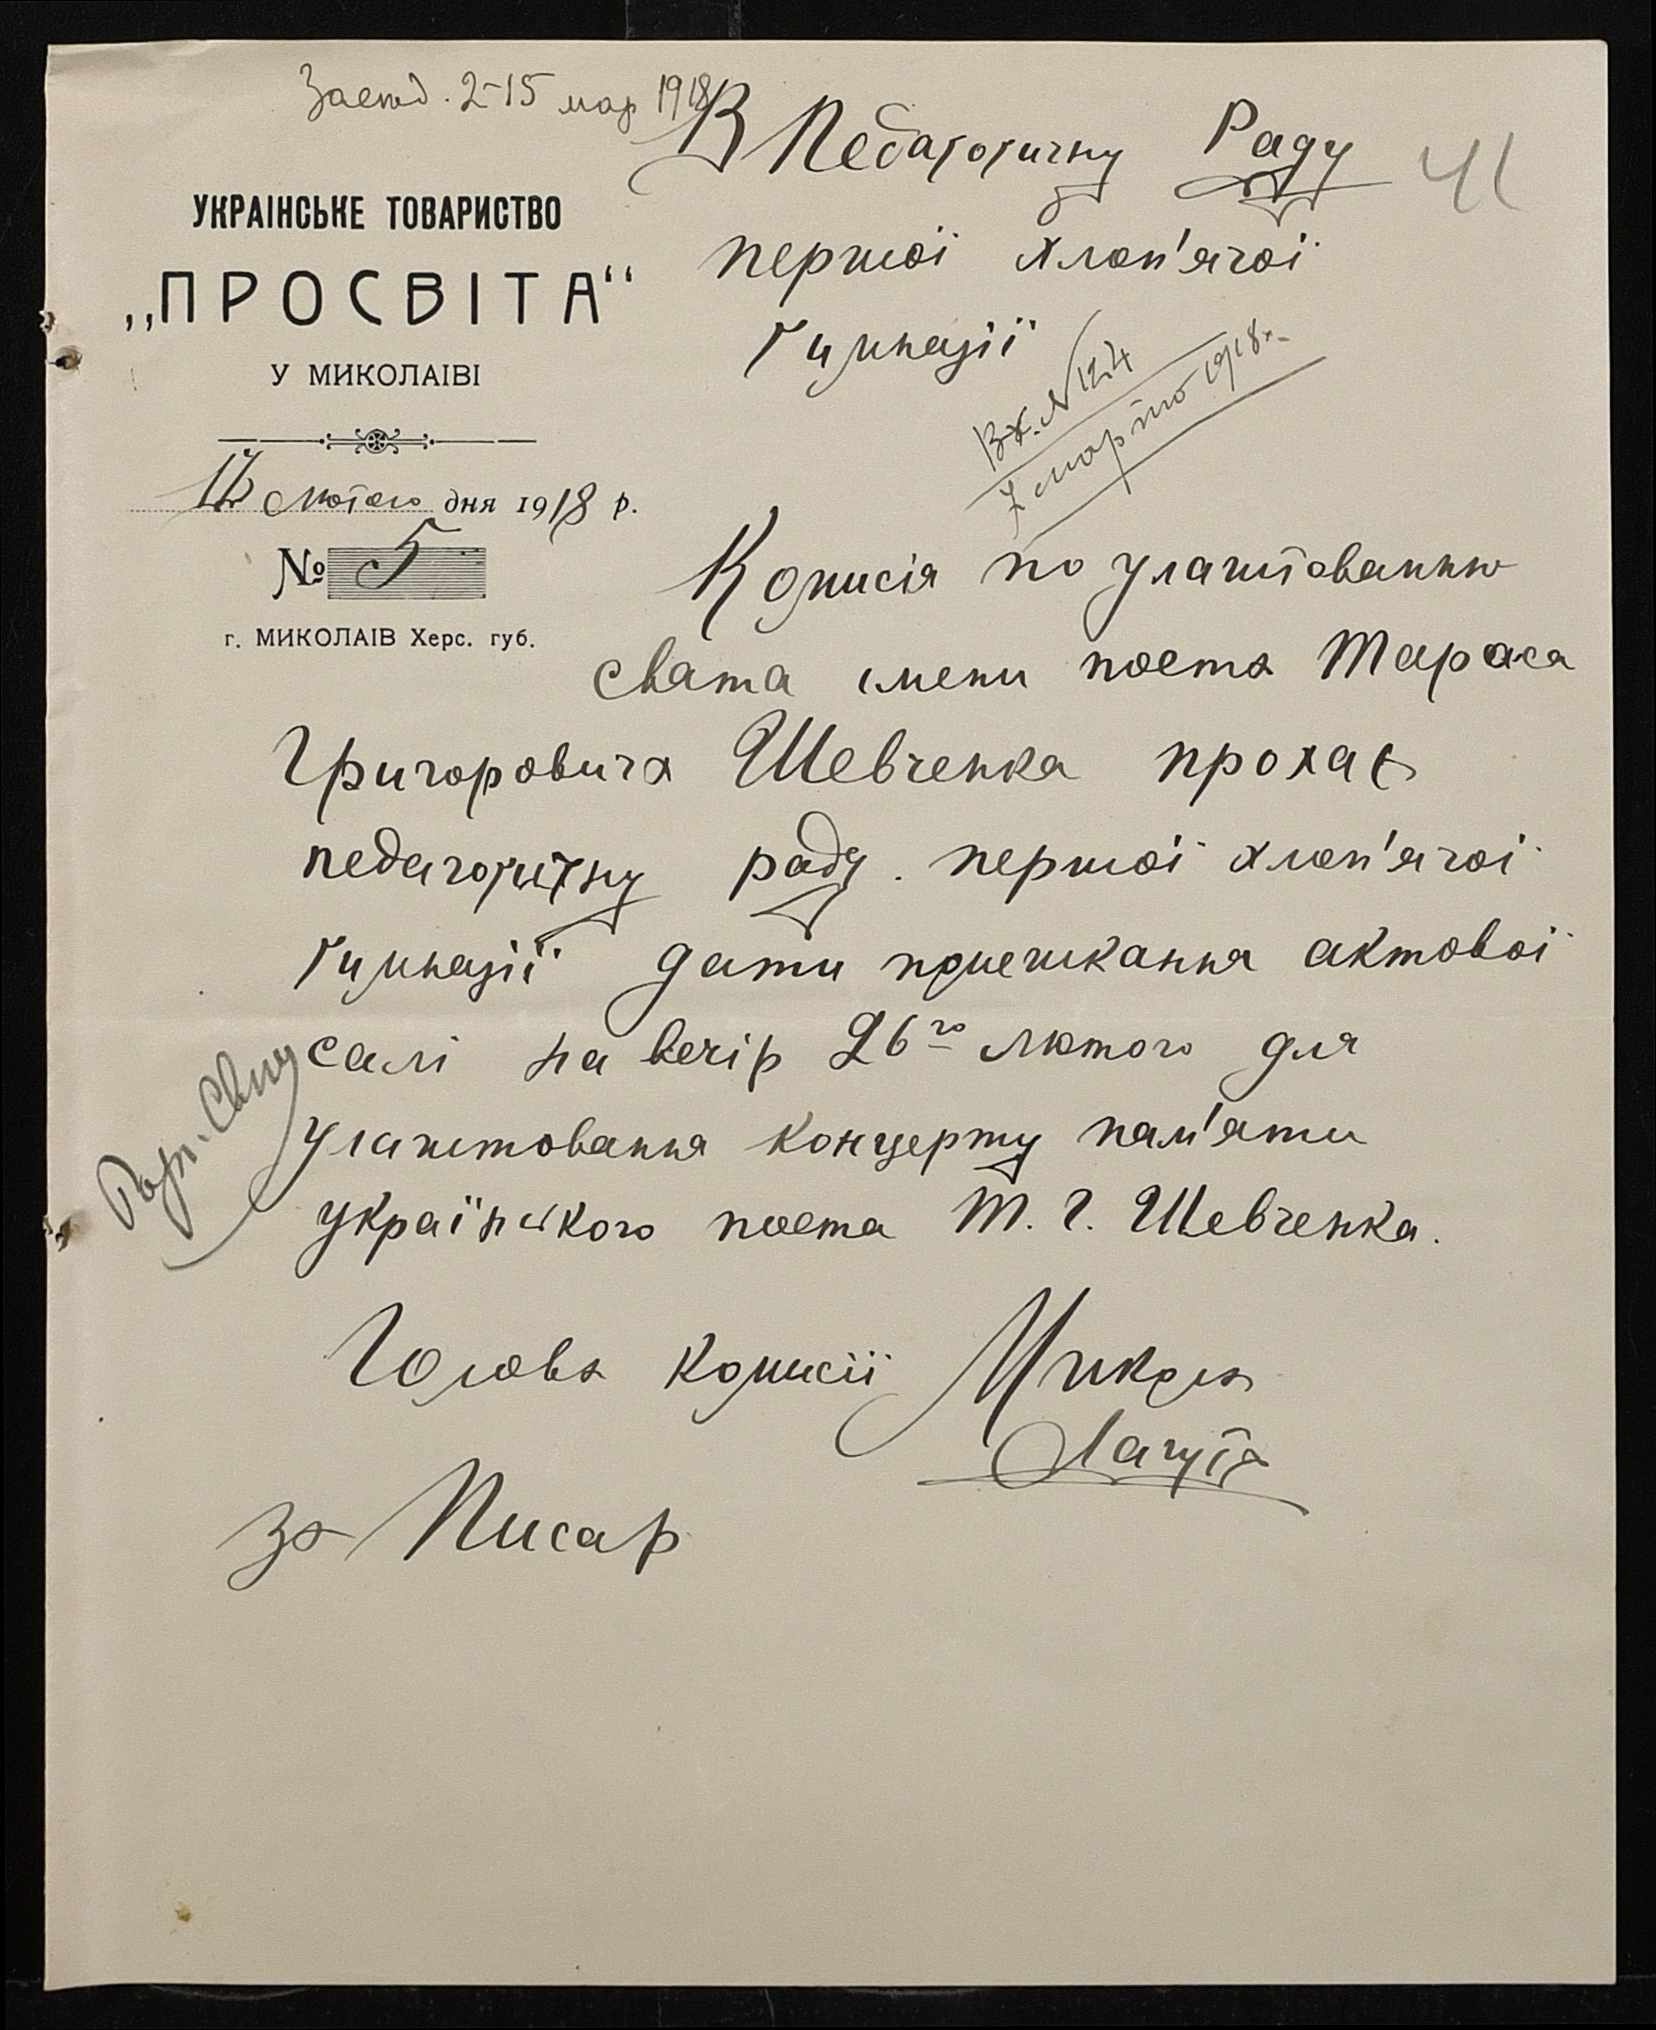 Засед. 2-15 мар 1918
В Педагогичну Раду
41
першоі хлоп'ячоі
Гимназіі
УКРАІНСЬКЕ ТОВАРИСТВО
„ПРОСВІТА“
У МИКОЛАІВІ
Вх. N 124
7 марта 1918 г.
12 Лютого дня 1918 р.
№ 5
г. МИКОЛАІВ Херс. губ.
Комисія по улаштованню
свята імени поета Тараса
Григоровича Шевченка прохає
педагогичну раду першоі хлоп'ячоі
Гимназіі дати помешкання актовоі
салі на вечір 26го Лютого для
улаштовання концерту пам'яти
украінського поета Т. Г. Шевченка.
Голова комисіі Микола
Лагута
за Писар